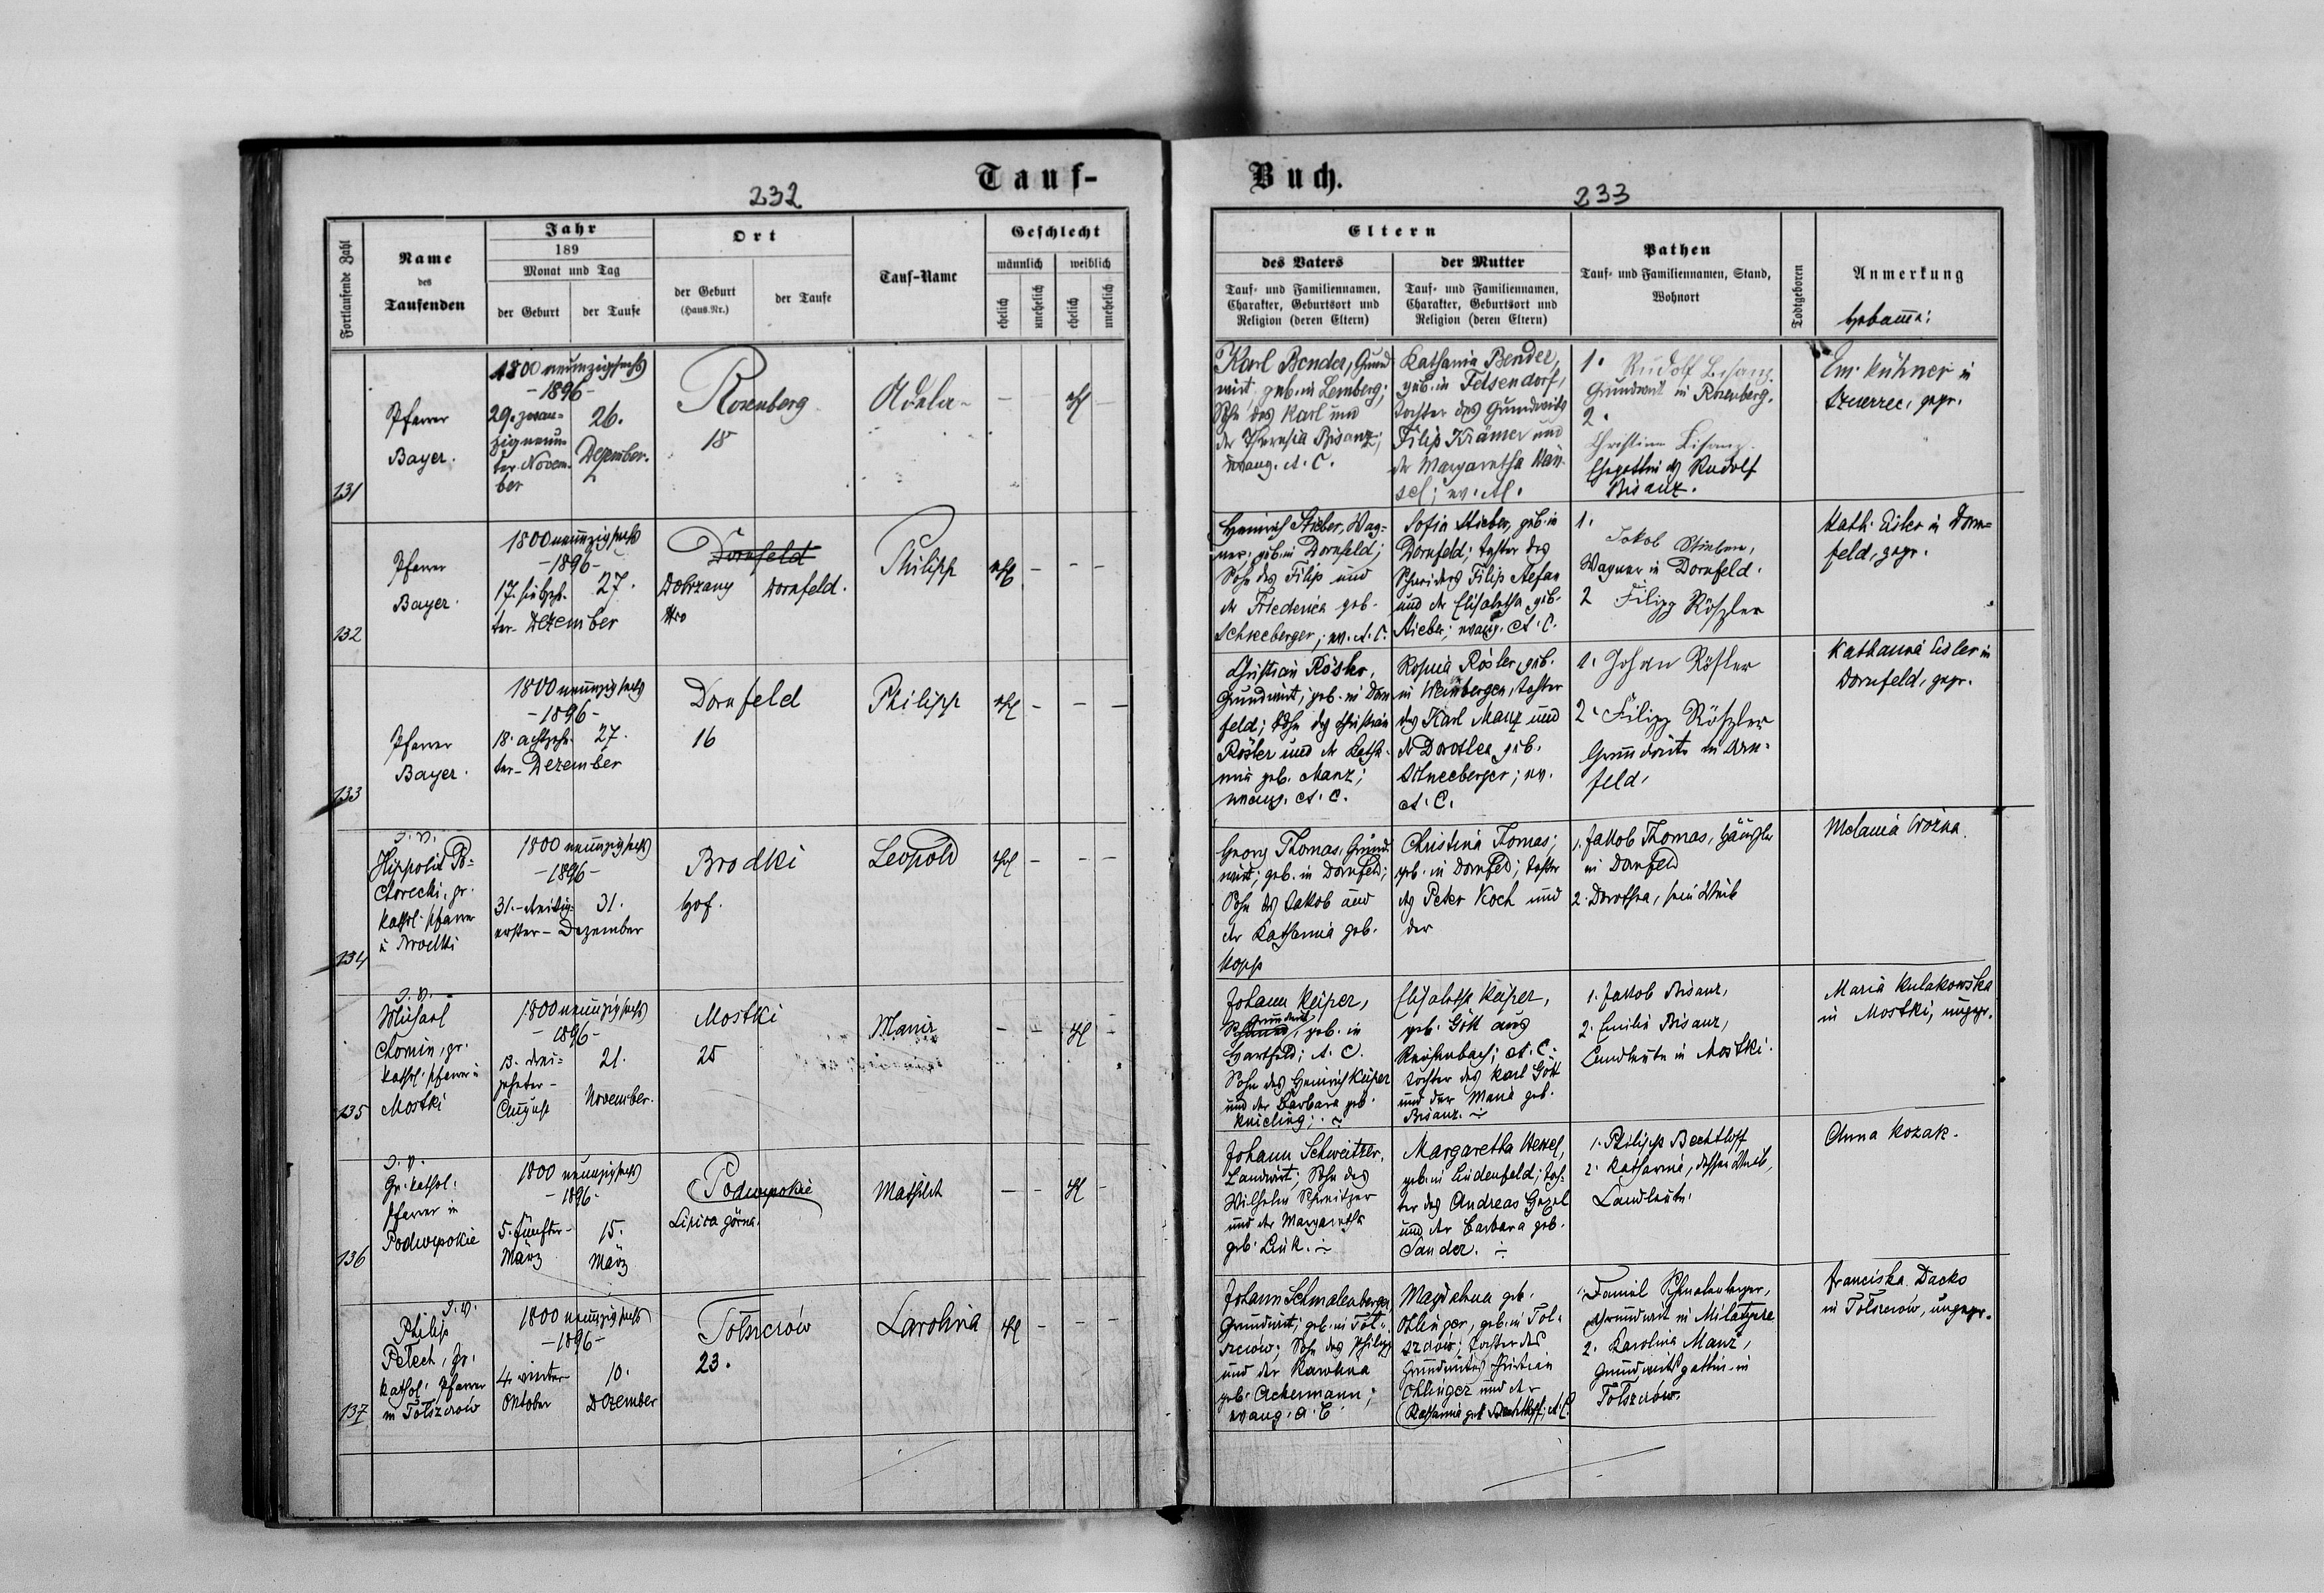 Tauf-
Buch.
232
233
Fortlaufende Zahl
Name
des
Taufenden
Jahr
189
Monat und Tag
der Geburt
der Taufe
Ort
der Geburt
(Haus-Nr.)
der Taufe
Tauf-Name
Geschlecht
männlich
weiblich
ehelich
unehelich
ehelich
unehelich
Eltern
des Vaters
Tauf- und Familiennamen,
Charakter, Geburtsort und
Religion (deren Eltern)
der Mutter
Tauf- und Familiennamen,
Charakter, Geburtsort und
Religion (deren Eltern)
Pathen
Tauf- und Familiennamen, Stand,
Wohnort
Todtgeboren
Anmerkung
Hebamme:
131
Pfarrer
Bayer.
1800 neunzigsechs
-1896-
29. zwan-
zigneun-
ter Novem-
ber
26.
Dezember.
Rosenberg
18
Adela
ehl
Karl Bender, Grund-
wirt, geb. in Lemberg;
Sohn des Karl und
der Theresia Bisanz;
evang. A. C.
Katharina Bender,
geb. in Felsendorf,
Tochter des Grundwirts
Filip Krämer und
der Margaretha
1. Rudolf Bisanz.
Grundwirt in Rosenberg.
2.
Christina Bisanz.
Ehegattin des Rudolf
Bisanz.
Em. Kühner in
Szczerzec, gepr.
132
Pfarrer
Bayer.
1800 neunzigsechs
-1896-
17. siebzehn-
ter- Dezember
27.
Dornfeld
Dobrzany
Dornfeld.
Philipp
ehl
Heinrich Stieber, Wag-
ner, geb. in Dornfeld;
Sohn des Filip und
der Friederica geb.
Schneeberger; ev. A. C.
Sofia Stieber, geb. in
Dornfeld; Tochter des
Schneiders Filip Stefan
und der Elisabetha geb.
Stieber; evang. A. C.
1.
Jakob Stieber,
Wagner in Dornfeld.
2 Filipp Röszler
Kath. Eisler in Dorn-
feld, gepr.
133
Pfarrer
Bayer.
1800 neunzigsechs
-1896-
18. achtzehn-
ter- Dezember
27.
Dornfeld
16
Philipp
ehl
Christian Rösler,
Grundwirt, geb. in Dorn-
feld; Sohn des Christian
Rösler und der Katha-
rina geb. Manz;
evang. A. C.
Rosina Rösler, geb.
in Weinbergen, Tochter
des Karl Manz und
der Dorothea geb.
Schneeberger; ev.
A. C.
1. Johan Rößler
2. Filipp Röszler
Grundwirte in Dorn-
feld.
Katharina Eisler in
Dornfeld, gepr.
134
i. V.
Hippolit
kathol. Pfarrer
in Brodki
1800 neunzigsechs
-1896-
31.- dreißig-
erster- Dezember
31.
Brodki
Hof.
Leopold
ehl
Georg Thomas, Grund-
wirt; geb. in Dornfeld;
Sohn des Jakob und
der Katharina geb.
Kopp
Christina Tomas;
geb. in Dornfeld; Tochter
des Peter Koch und
der
1. Jakob Thomas, Häusler
in Dornfeld
2. Dorothea, sein Weib
Melania Wozna.
135
i. V.
Michael
Chomin, gr.
kathol. Pfarrer in
Mostki
1800 neunzigsechs
-1896-
13. drei-
zehnter-
August
21.
November.
Mostki
25
Maria
ehl
Johann Keiper,
Grundwirt, geb. in
Hartfeld; A. C.
Sohn des Heinrich Keiper
und der Barbara geb.
Knieling;
Elisabetha Keiper,
geb. Gött aus
Reichenbach; A. C.
Tochter des Karl Gött
und der Maria geb.
Bisanz.
1. Jakob Bisanz,
2. Emilie Bisanz,
Landleute in Mostki.
Maria Kulakowska
in Mostki, ungepr.
136
i. V.
Gr. kathol.
Pfarrer in
1800 neunzigsechs
-1896-
5. fünfter-
März
15.
März
Lipica górna.
Mathilde
ehl
Johann Schweitzer,
Landwirt; Sohn des
Wilhelm Schweitzer
und der Margaretha
geb. Link.
Margaretha
geb. in Lindenfeld; Toch-
ter des Andreas
und der Barbara geb.
Sander.
1. Philipp Bechtloff
2. Katharina, dessen Weib,
Landleute.
Anna Kozak.
137
i. V.
Philip
Petech, gr.
kathol. Pfarrer
in Tołszczów
1800 neunzigsechs
-1896-
4. vierter-
Oktober
10.
Dezember
Tołszczów
23.
Karolina
ehl
Johann Schmalenberger
Grundwirt; geb. in Toł-
szczów; Sohn des Philipp
und der Karolina
geb. Achermann;
evang. A. C.
Magdalena geb.
Ohlinger, geb. in Toł-
szczów; Tochter des
Grundwirtes Christian
Ohlinger und der
Katharina geb. Bechtloff; A. C.
1. Daniel Schmalenberger,
Grundwirt in
2. Karolina Manz,
Grundwirtsgattin in
Tołszczów.
Franciska Dacko
in Tołszczów, ungepr.